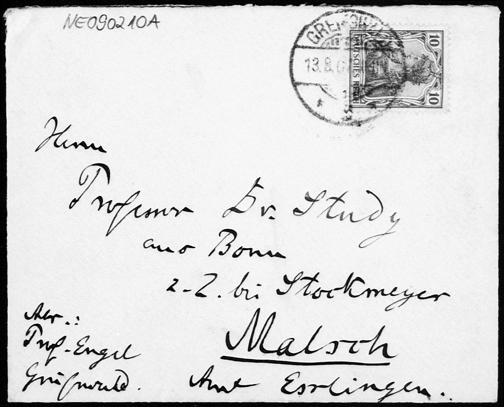 NE090210A
13.8.0
DEUTSCHES REICH
10
10
Herrn
Professor Dr. Study
aus Bonn
z. Z. bei Stockmeyer
Malsch
Amt Esslingen.
Abs.:
Prof. Engel
Greifswald.